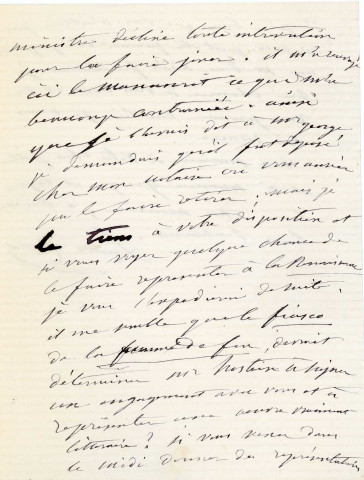 ministre décline toute intervention
pour la faire jouer. il m'a envoyé
ici le manuscrit ce qui m'a
beaucoup contrarié. ainsi
que je l'avais dit à mr george
je demandais qu'il fut déposé
chez mon notaire où vous auriez
pu le faire retirer; mais je
le tiens à votre disposition et
si vous voyez quelque chance de
le faire représenter à la Renaissance
je vous l'expédierai de suite.
il me semble que le fiasco
de la femme de feu, devrait
déterminer mr hostein à signer
un engagement avec vous et à
représenter une œuvre vraiment
littéraire? si vous venez dans
le midi donner des représentations